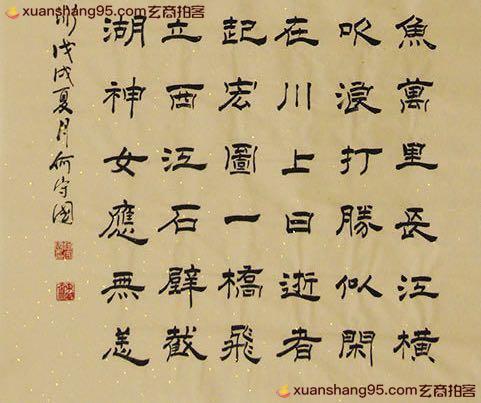 xuanshang95.com玄商拍客
xuanshang95.com玄商拍客
魚萬里長江橫
吹浪打勝似閑
在川上曰逝者
起宏圖一橋飛
立西江石壁截
湖神女應無恙
戊戌夏月何守國
xuanshang95.com玄商拍客